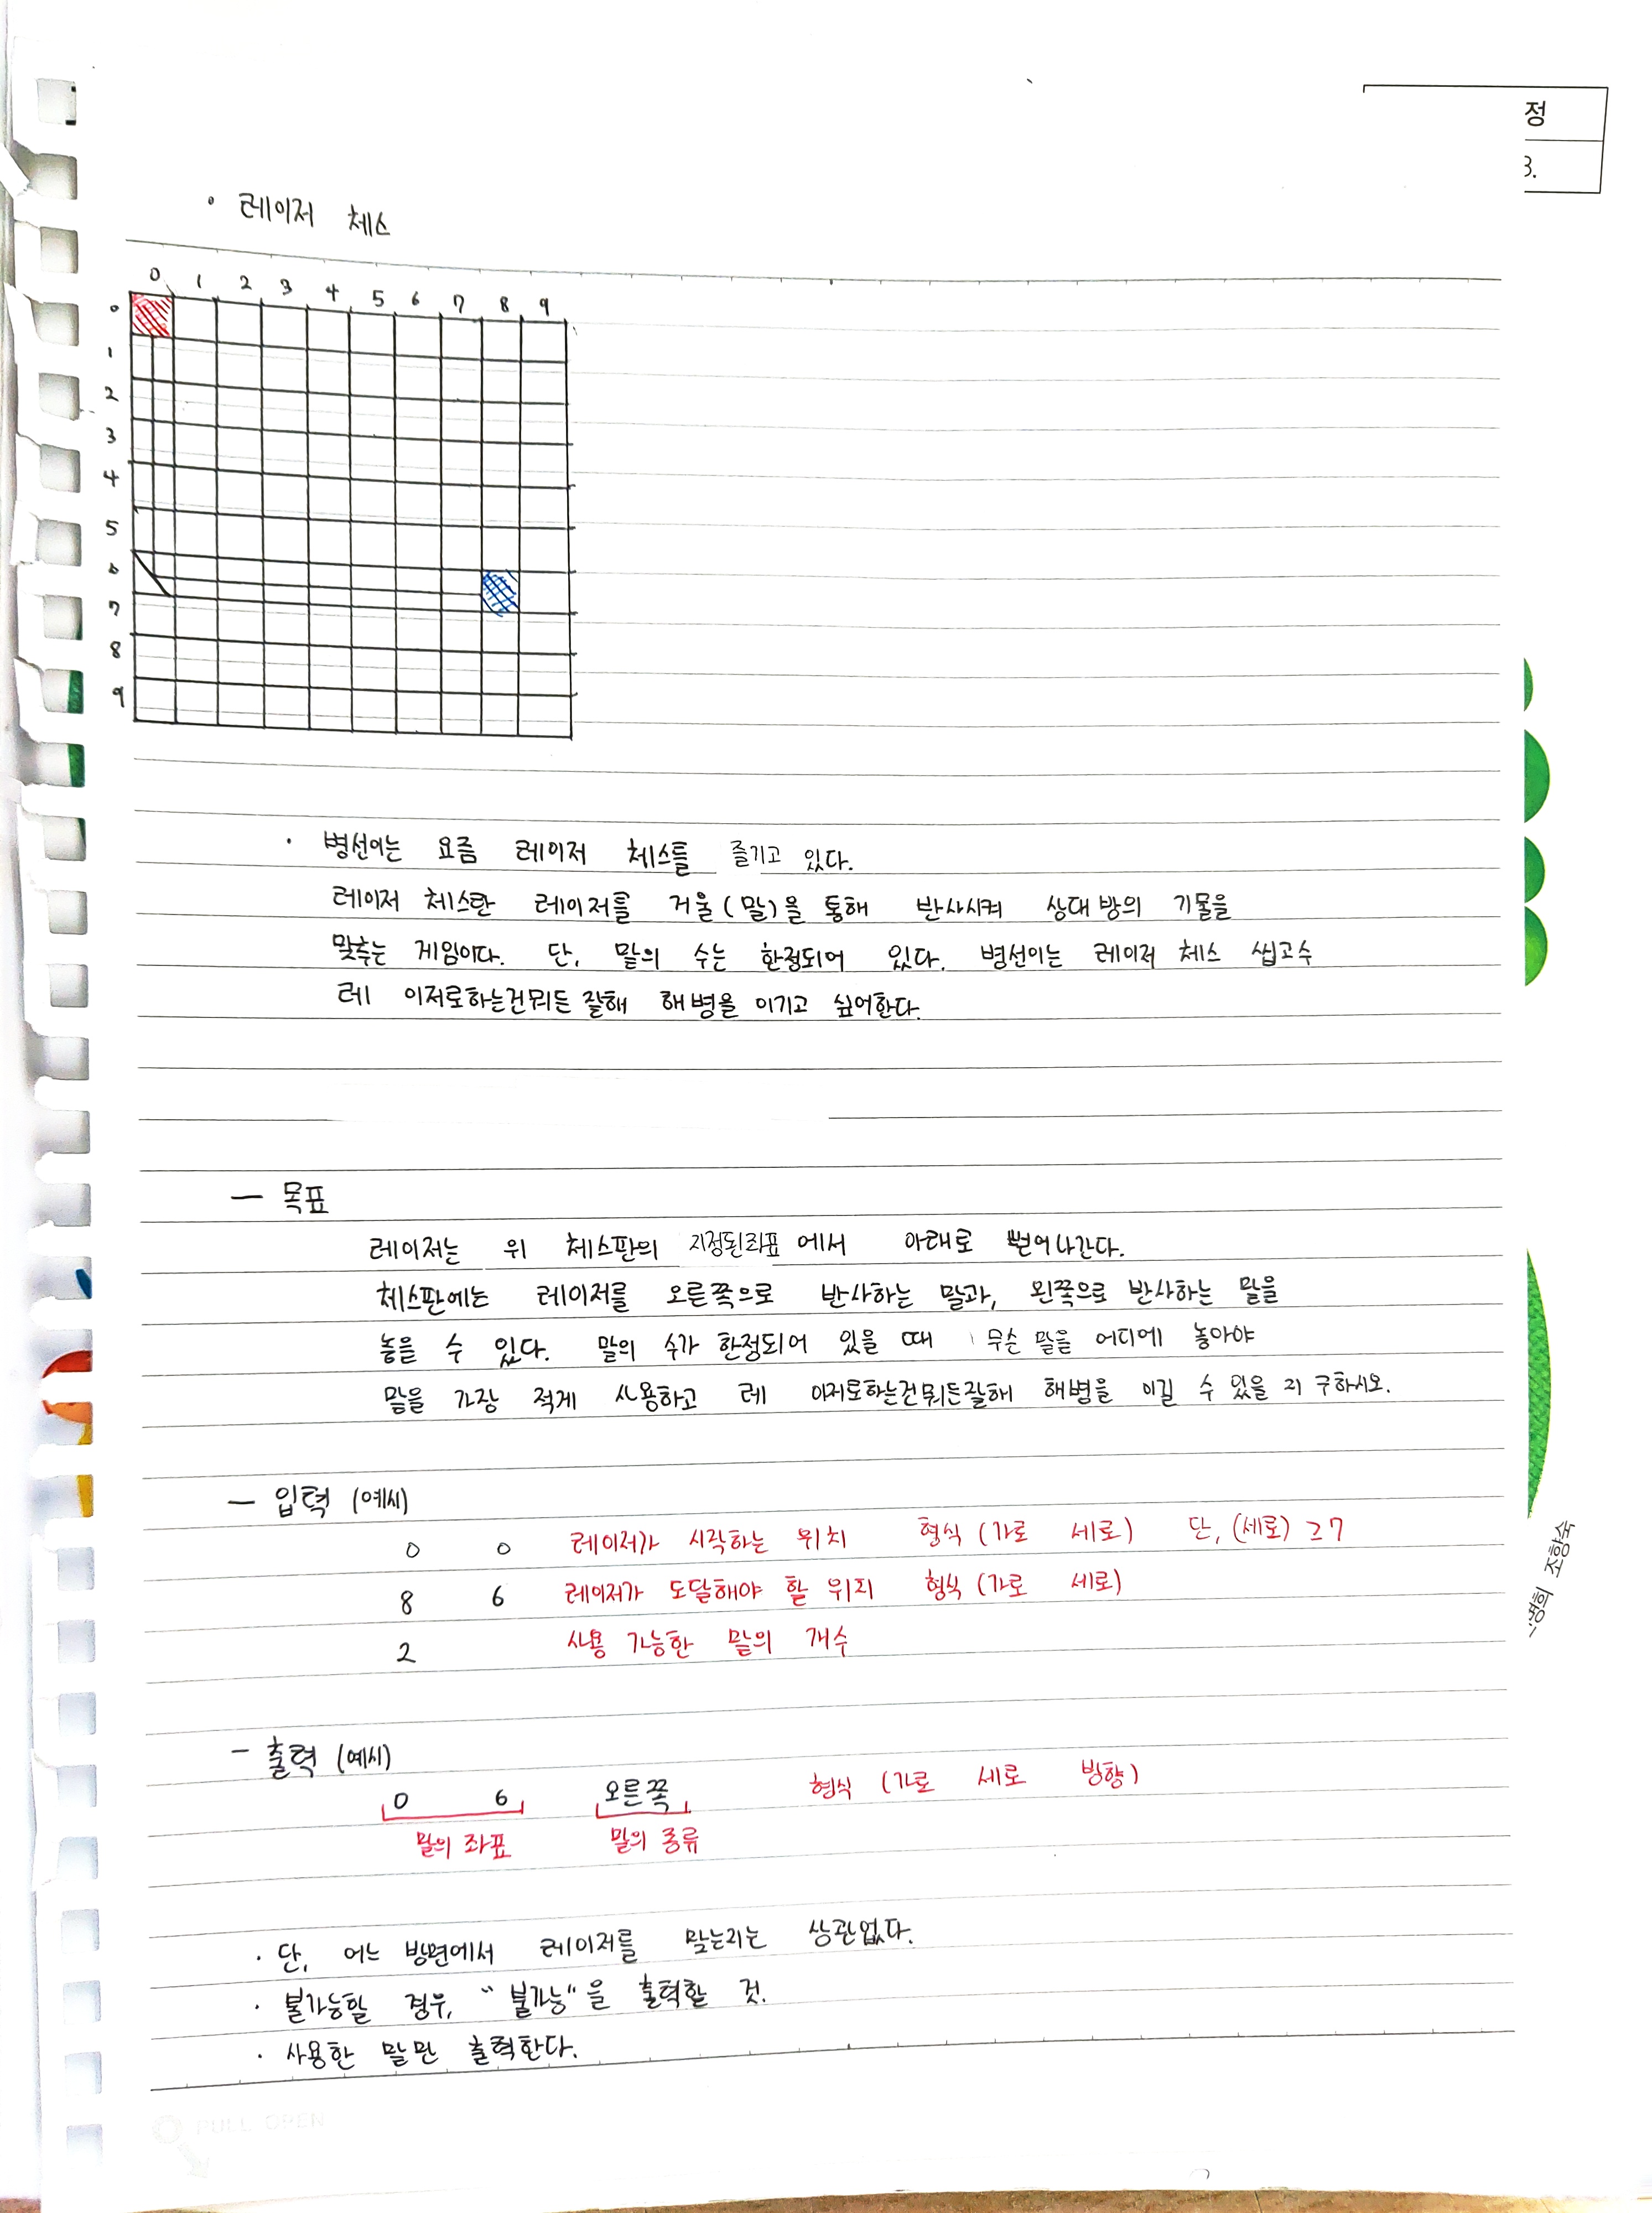 정
3.
· 레이저 체스
0 1 2 3 4 5 6 7 8 9
0
1
2
3
4
5
6
7
8
9
· 병선이는 요즘 레이저 체스를 즐기고 있다.
레이저 체스란 레이저를 거울(말)을 통해 반사시켜 상대방의 기물을
맞추는 게임이다. 단, 말의 수는 한정되어 있다. 병선이는 레이저 체스 씹고수
레 이저로하는건뭐든잘해 해병을 이기고 싶어한다.
- 목표
레이저는 위 체스판의 지정된좌표에서 아래로 뻗어나간다.
체스판에는 레이저를 오른쪽으로 반사하는 말과, 왼쪽으로 반사하는 말을
놓을 수 있다. 말의 수가 한정되어 있을 때, 무슨 말을 어디에 놓아야
말을 가장 적게 사용하고 레 이저로하는건뭐든잘해 해병을 이길 수 있을 지 구하시오.
- 입력 (예시)
0 0 레이저가 시작하는 위치 형식 (가로 세로) 단, (세로) ≥7
8 6 레이저가 도달해야 할 위치 형식 (가로 세로)
2 사용 가능한 말의 개수
- 출력 (예시)
0 6 오른쪽 형식 (가로 세로 방향)
말의 좌표 말의 종류
· 단, 어느 방면에서 레이저를 맞는지는 상관없다.
· 불가능할 경우, "불가능"을 출력할 것.
· 사용한 말만 출력한다.
PULL OPEN
조향숙